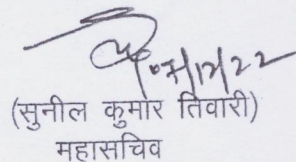 07/12/22
(सुनील कुमार तिवारी)
महासचिव